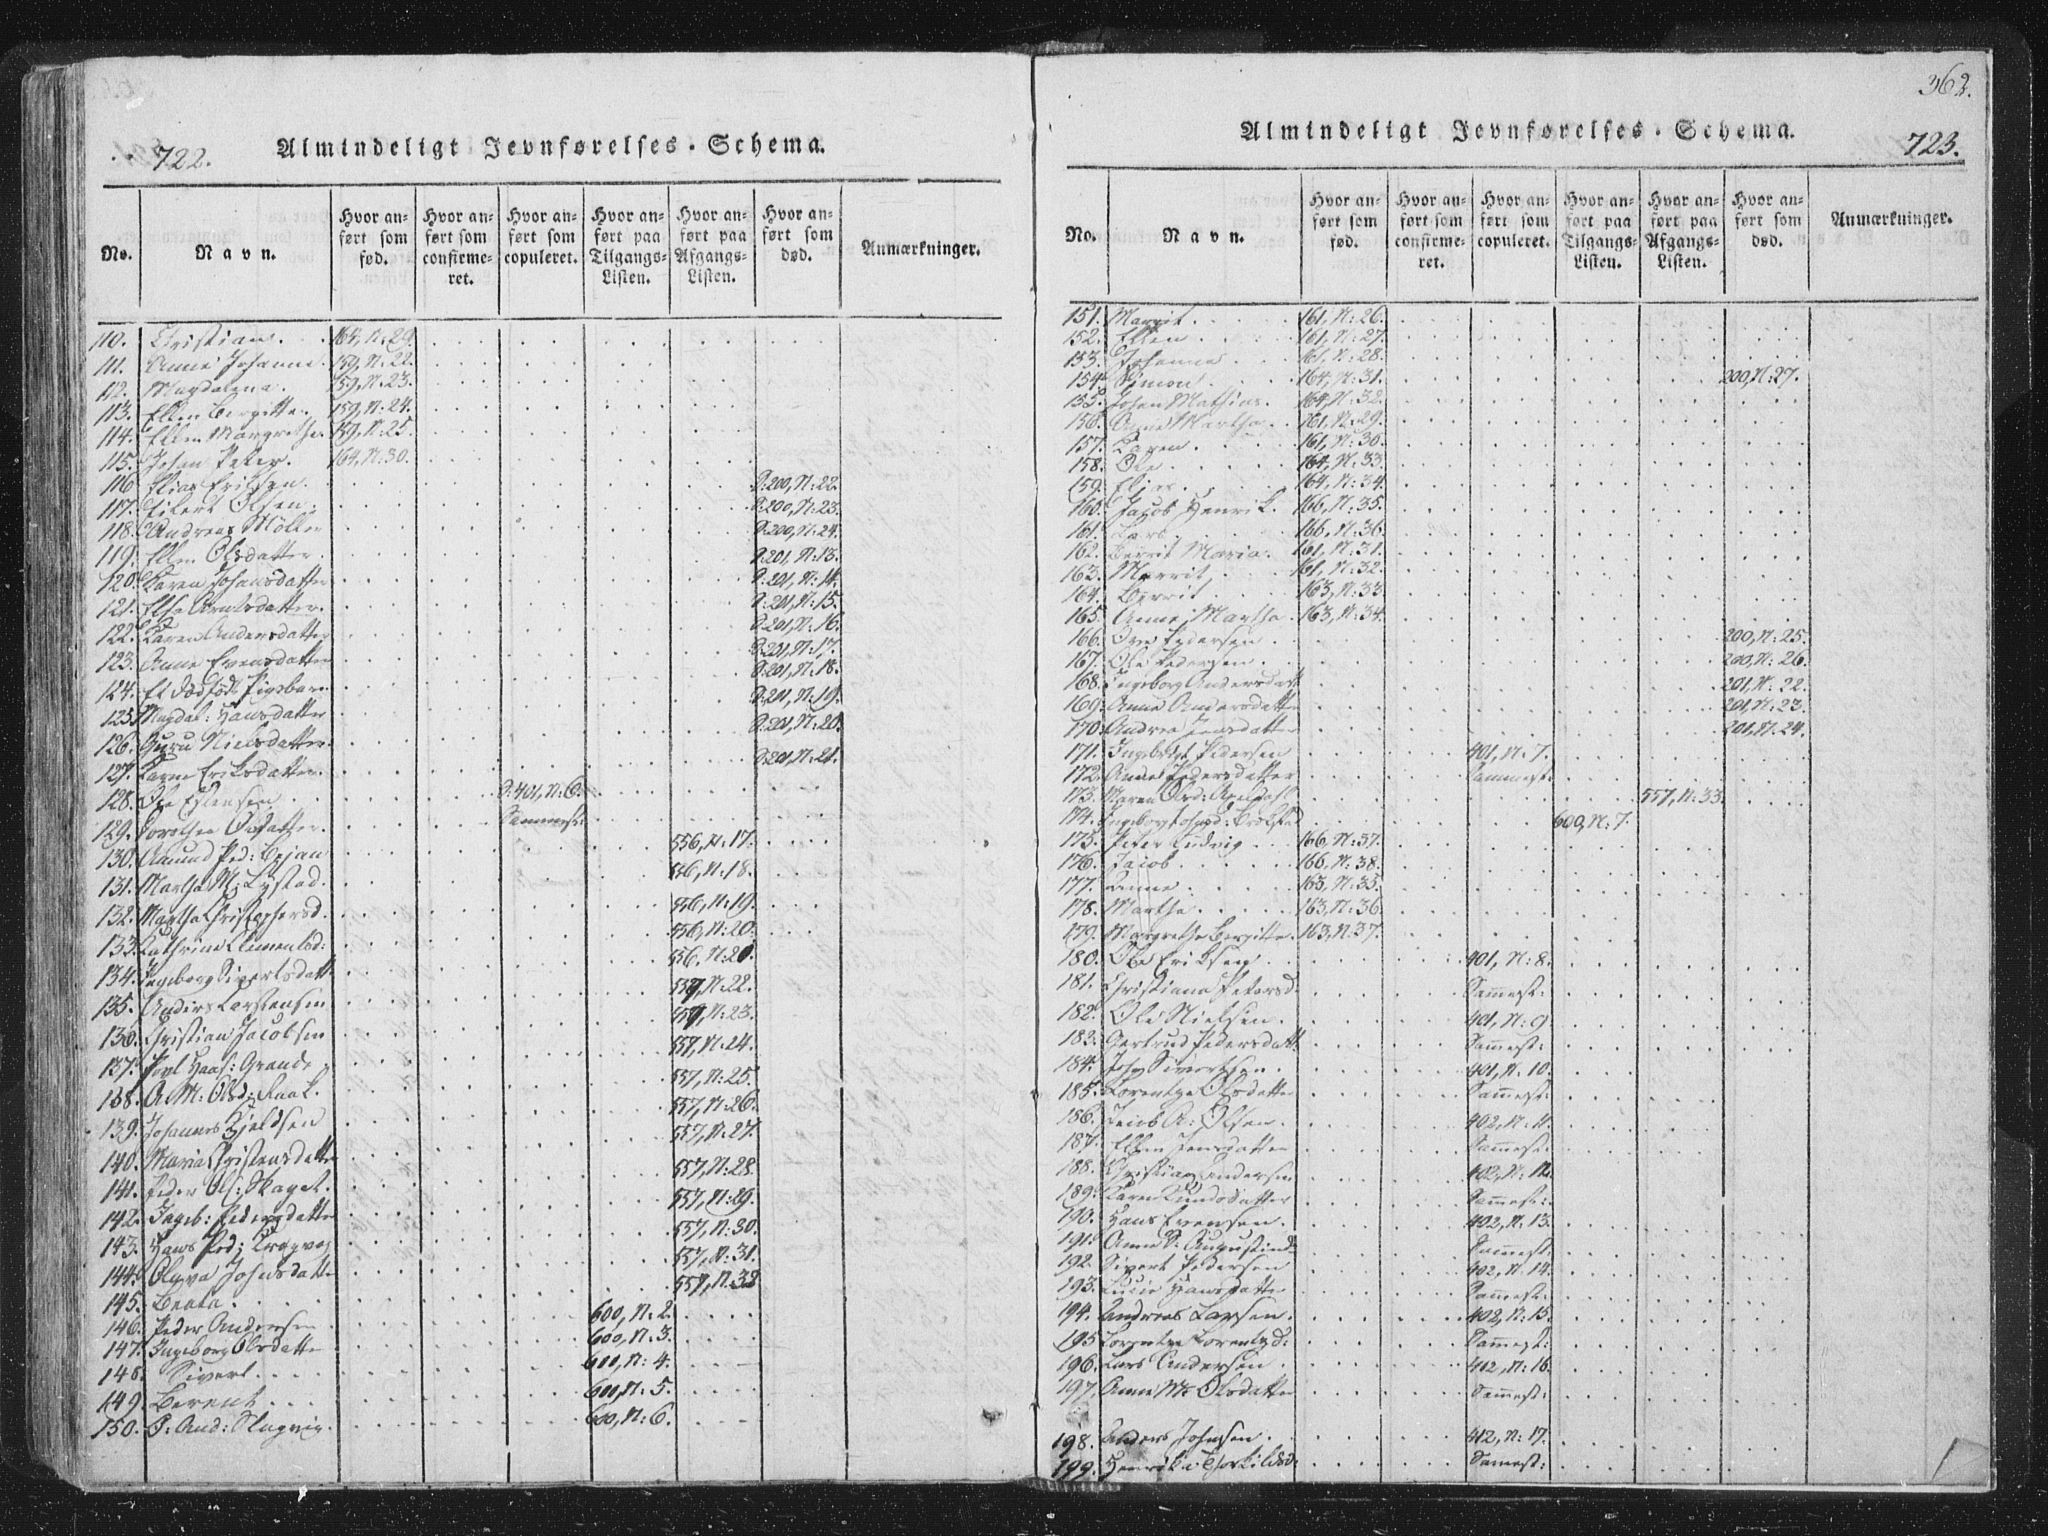 722.
Almindeligt Jevnførelses-Schema.
No.
Navn.
Hvor anført som fød.
Hvor anført som confirmeret.
Hvor anført som copuleret.
Hvor anført paa Tilgangs-Listen.
Hvor anført paa Afgangs-Listen.
Hvor anført som død.
Anmærkninger.
110. Christian. 164, N: 29.
111. Anne Johanne. 159, N: 22.
112. Magdalena. 159, N: 23.
113. Ellen Bergitte. 159, N: 24.
114. Ellen Margrethe. 159, N: 25.
115. Johan Peter. 164, N: 30.
116. Elias Eriksen. P: 200, N: 22.
117. Eilert Olsen. P: 200, N: 23.
118. Andreas Møller P: 200, N: 24.
119. Ellen Olsdatter. P: 201, N: 13.
120. Karen Johansdatter P: 201, N: 14.
121. Else Arntsdatter. P: 201, N: 15.
122. Karen Andersdatter P: 201, N: 16.
123. Anne Evensdatter P: 201, N: 17.
124. Et dødfød Pigebarn P: 201, N: 18.
125. Magdal: Hansdatter P: 201, N: 19.
126. Guru Nielsdatter. P: 201, N: 20.
127. Karen Eriksdatter. P: 201, N: 21.
128. Ole Estensen P: 401, N: 6.
129. Dorothea Olsdatter. Sammest:
130. Amund Ped: Bejan 556, N: 17.
131. Martha M: Lystad. 556, N: 18.
132. Martha Christophersd. 556, N: 19.
133. Cathrine Clemendsd: 556, N: 20.
134. Ingeborg Sivertsdatt: 556, N: 21.
135. Anders Carstensen 557, N: 22.
136. Christian Jacobsen 557, N: 23.
137. Povl Haaf: Grande 557, N: 24.
138. A. M: Olsd: Raak. 557, N: 25.
139. Johannes Kjeldsen 557, N: 26.
140. Maria Christensdatter 557, N: 27.
141. Peder Ols: Skaget. 557, N: 28.
142. Ingeb: Pedersdatter 557, N: 29.
143. Hans Ped: 557, N: 30.
144. Olava Johnsdatter 557, N: 31.
145. Beata. 557, N: 32
146. Peder Andersen 600, N: 2.
147. Ingeborg Olsdatter 600, N: 3.
148. Sivert. 600, N: 4.
149. Berent 600, N: 5.
150. O: And: Slagvig. 600, N: 6.
362.
723.
Almindeligt Jevnførelses-Schema.
No.
Navn.
Hvor anført som fød.
Hvor anført som confirmeret.
Hvor anført som copuleret.
Hvor anført paa Tilgangs-Listen.
Hvor anført paa Afgangs-Listen.
Hvor anført som død.
Anmærkninger.
151. Marrit. 161, N: 26.
152. Ellen 161, N: 27.
153. Johanna 161, N: 28.
154. Simon. 164, N: 31. 200, N: 27.
155. Johan Mathias. 164, N: 32.
156. Anne Martha. 161, N: 29.
157. Karen. 161, N: 30.
158. Ole 164, N: 33.
159. Elias 164, N: 34.
160. Jacob Henrik. 166, N: 35.
161. Lars. 166, N: 36.
162. Berrit Maria. 161, N: 31.
163. Marrit, 161, N: 32.
164. Berrit 163, N: 33
165. Anne Martha 163, N: 34.
166. Ove Pedersen 200, N: 25.
167. Ole Pedersen 200, N: 26.
168. Ingeborg Andersdatt 201, N: 22.
169. Anne Andersdatter 201, N: 23.
170. Andrea Jensdatter 201, N: 24.
171. Ingebrigt Pedersen 401, N: 7.
172. Anne Pedersdatter Sammest:
173. Maren Olsd: 557, N: 33.
174. Ingeborg 600, N: 7.
175. Peter Ludvig 166, N: 37.
176. Jacob 166, N: 38.
177. Anne 163, N: 35.
178. Martha 163, N: 36.
179. Margrethe Bergitte. 163, N: 37.
180. Ole Eriksen 401, N: 8.
181. Christiana Petersd. Sam̄est:
182. Ole Nielsen. 401, N: 9.
183. Gertrud Pedersdatt: Sam̄est:
184. John Sivertsen. 401, N: 10.
185. Lorentze Olsdatter Sam̄est:
186. Jens A: Olsen. 402, N: 11.
187. Ellen Jensdatter Sam̄est:
188. Christian Andersen 402, N: 12.
189. Karen Knudsdatter Sam̄est:
190. Hans Evensen. 402, N: 13.
191. Anne S: Augustind: Sam̄est:
192. Sivert Pedersen 402, N: 14.
193. Lucie Hansdatter Sam̄est:
194. Andreas Larsen. 402, N: 15.
195 Lorentze Lorentzd: Sam̄est:
196. Lars Andersen 412, N: 16.
197. Anne M: Olsdatter Sam̄est:
198. Anders Johnsen. 412, N: 17.
199. Henrikа Torkildsd: Samest: